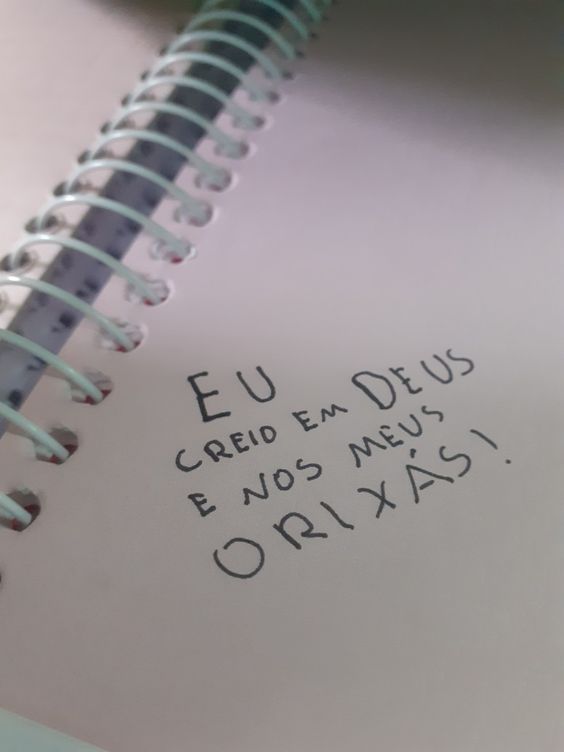 EU
CREIO EM DEUS
E NOS MEUS
ORIXÁS!